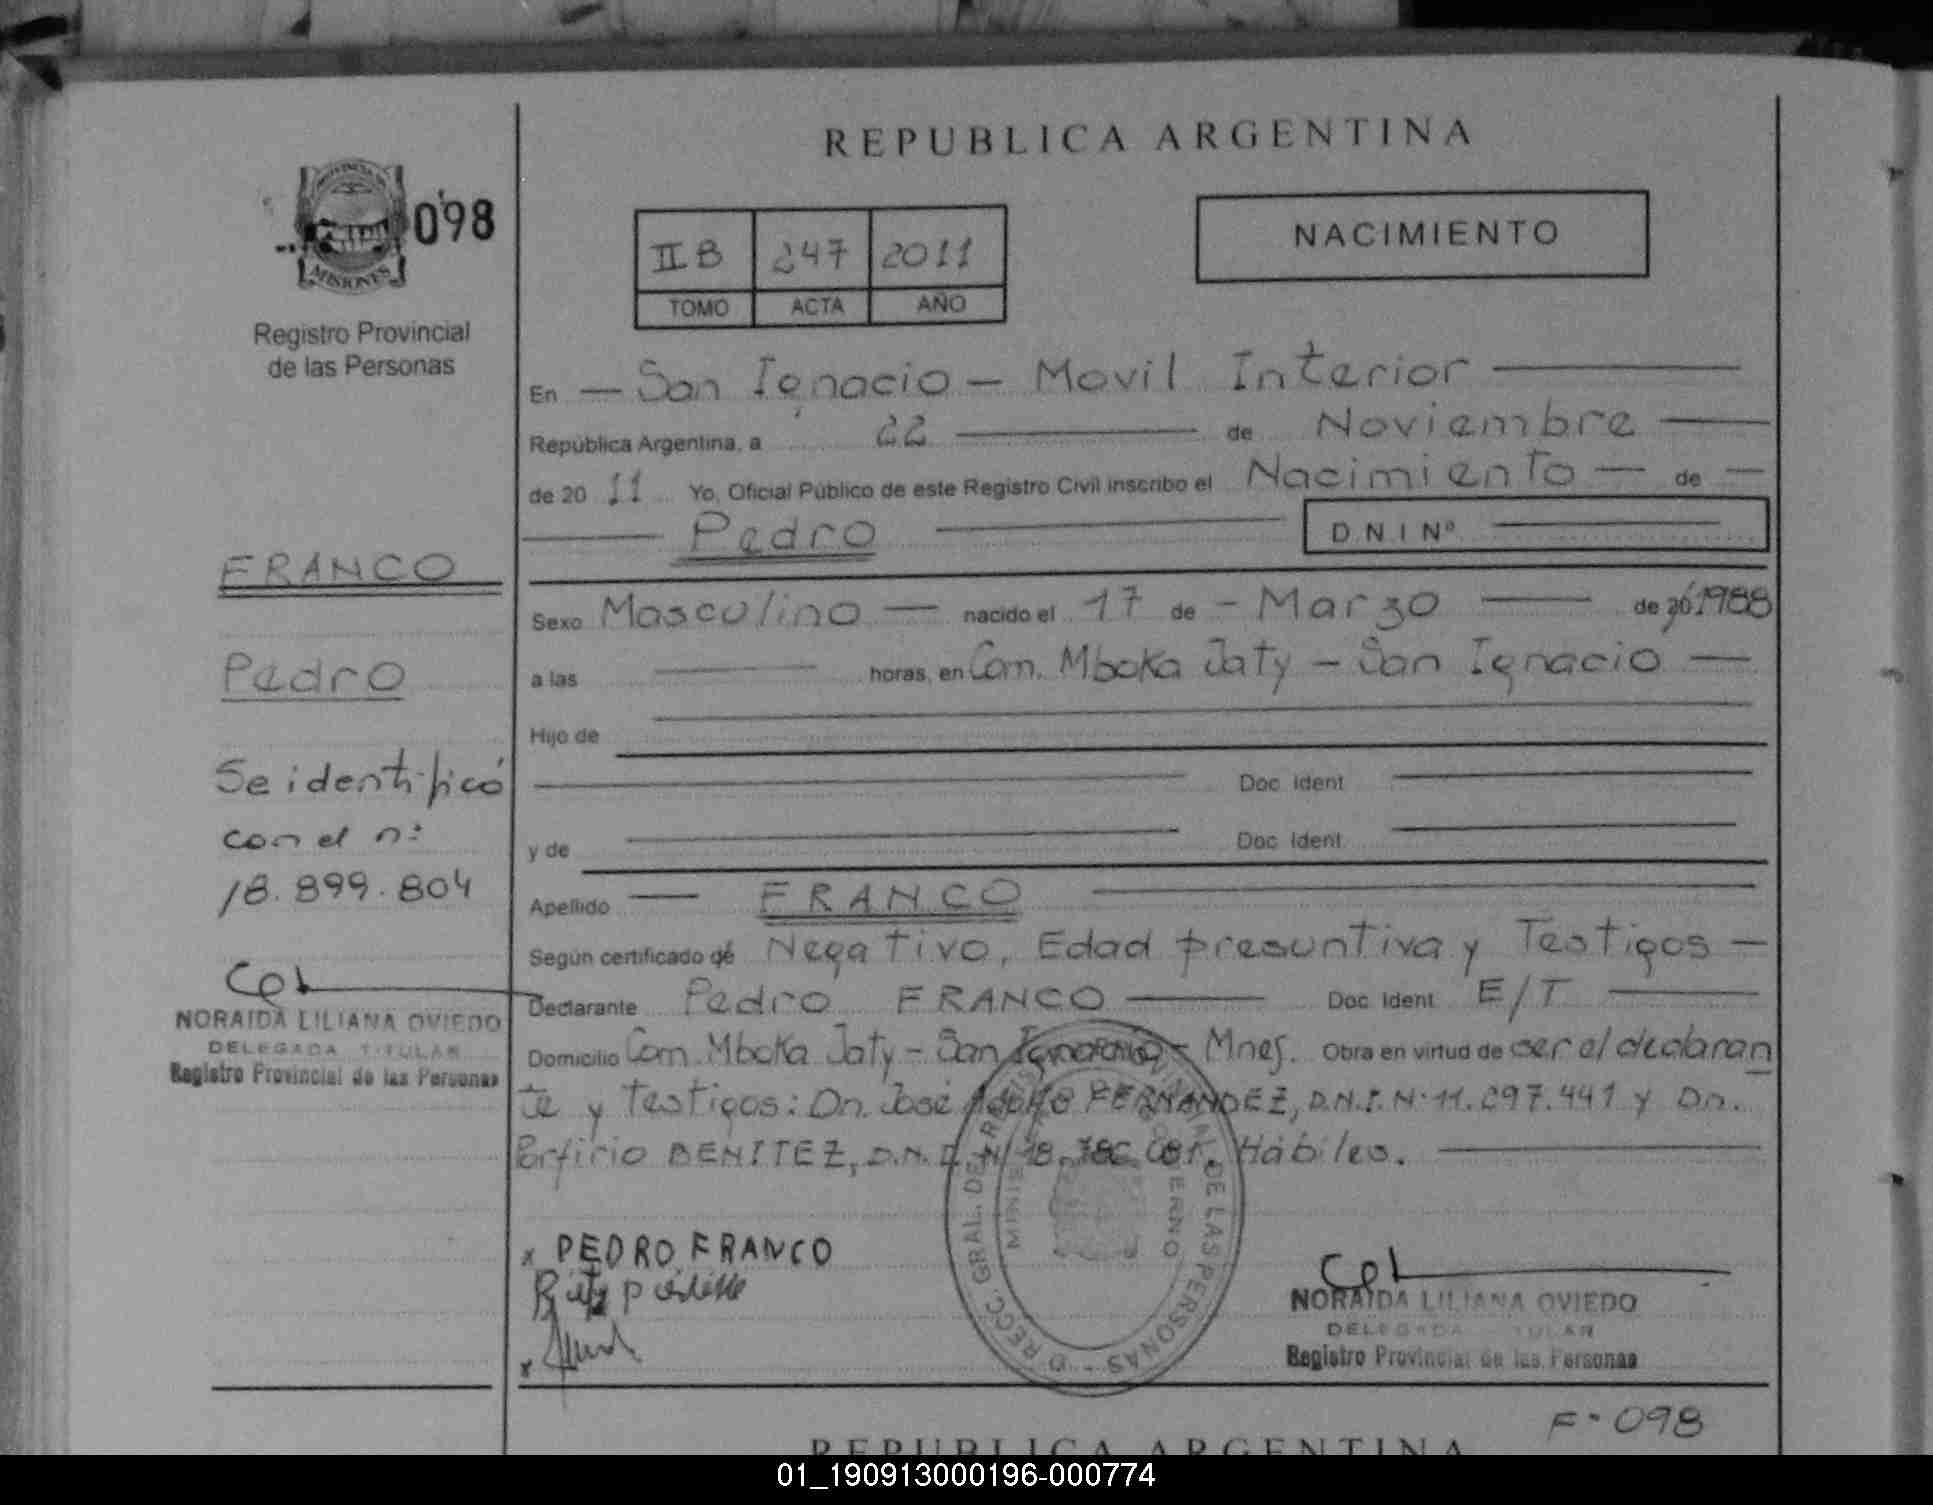 REPUBLICA ARGENTINA
098
MISIONES
Registro Provincial
de las Personas
NACIMIENTO
II B 247 2011
TOMO ACTA AÑO
En — San Ignacio — Movil Interior —
República Argentina, a 22 — de Noviembre —
de 20 11 Yo, Oficial Público de este Registro Civil inscribo el Nacimiento — de —
— Pedro — D.N.I Nº —
FRANCO
Pedro
Se identificó
con el nº
18.899.804
NORAIDA LILIANA OVIEDO
DELEGADA TITULAR
Registro Provincial de las Personas
Sexo Masculino — nacido el 17 de - Marzo — de 20 1988
a las — horas, en Com. Mboka Jaty - San Ignacio —
Hijo de —
— Doc. Ident. —
y de — Doc. Ident. —
Apellido — FRANCO —
Según certificado de Negativo, Edad presuntiva y Testigos —
Declarante Pedro FRANCO — Doc. Ident. E/T —
Domicilio Com. Mboka Jaty - San Ignacio - Mnes. Obra en virtud de ser el declaran
te y testigos: Dn. José FERNANDEZ, D.N.I. Nº 11.297.441 y Dn.
Porfirio BENITEZ, D.N.I. Nº 18. Hábiles. —
x PEDRO FRANCO
x
DIRECC. GRAL. DEL REGISTRO PROVINCIAL DE LAS PERSONAS
MINIS GOBIERNO
NORAIDA LILIANA OVIEDO
DELEGADA TITULAR
Registro Provincial de las Personas
F-098
REPUBLICA ARGENTINA
01_190913000196-000774